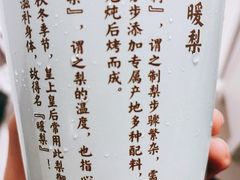 暖梨
」，谓之制梨步骤繁杂，需
步添加专属产地多种配料，
炖后烤而成。
」，谓之梨的温度，也指心
秋冬季节，皇上皇后常用此梨御
温补身体，故得名『暖梨』！